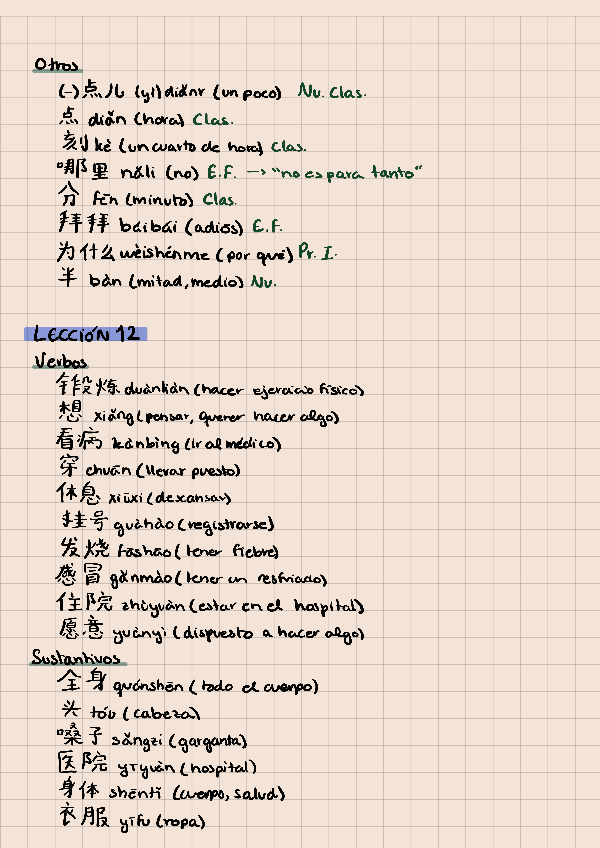 Otros
(一)点儿 (yì)diǎnr (un poco) Nu. Clas.
点 diǎn (hora) Clas.
刻 kè (un cuarto de hora) Clas.
哪里 nǎli (no) E.F. → "no es para tanto"
分 fēn (minuto) Clas.
拜拜 báibái (adiós) E.F.
为什么 wèishénme (por qué) Pr. I.
半 bàn (mitad, medio) Nu.
LECCIÓN 12
Verbos
锻炼 duànliàn (hacer ejercicio físico)
想 xiǎng (pensar, querer hacer algo)
看病 kànbìng (ir al médico)
穿 chuān (llevar puesto)
休息 xiūxi (descansar)
挂号 guàhào (registrarse)
发烧 fāshāo (tener fiebre)
感冒 gǎnmào (tener un resfriado)
住院 zhùyuàn (estar en el hospital)
愿意 yuànyì (dispuesto a hacer algo)
Sustantivos
全身 quánshēn (todo el cuerpo)
头 tóu (cabeza)
嗓子 sǎngzi (garganta)
医院 yīyuàn (hospital)
身体 shēntǐ (cuerpo, salud)
衣服 yīfu (ropa)